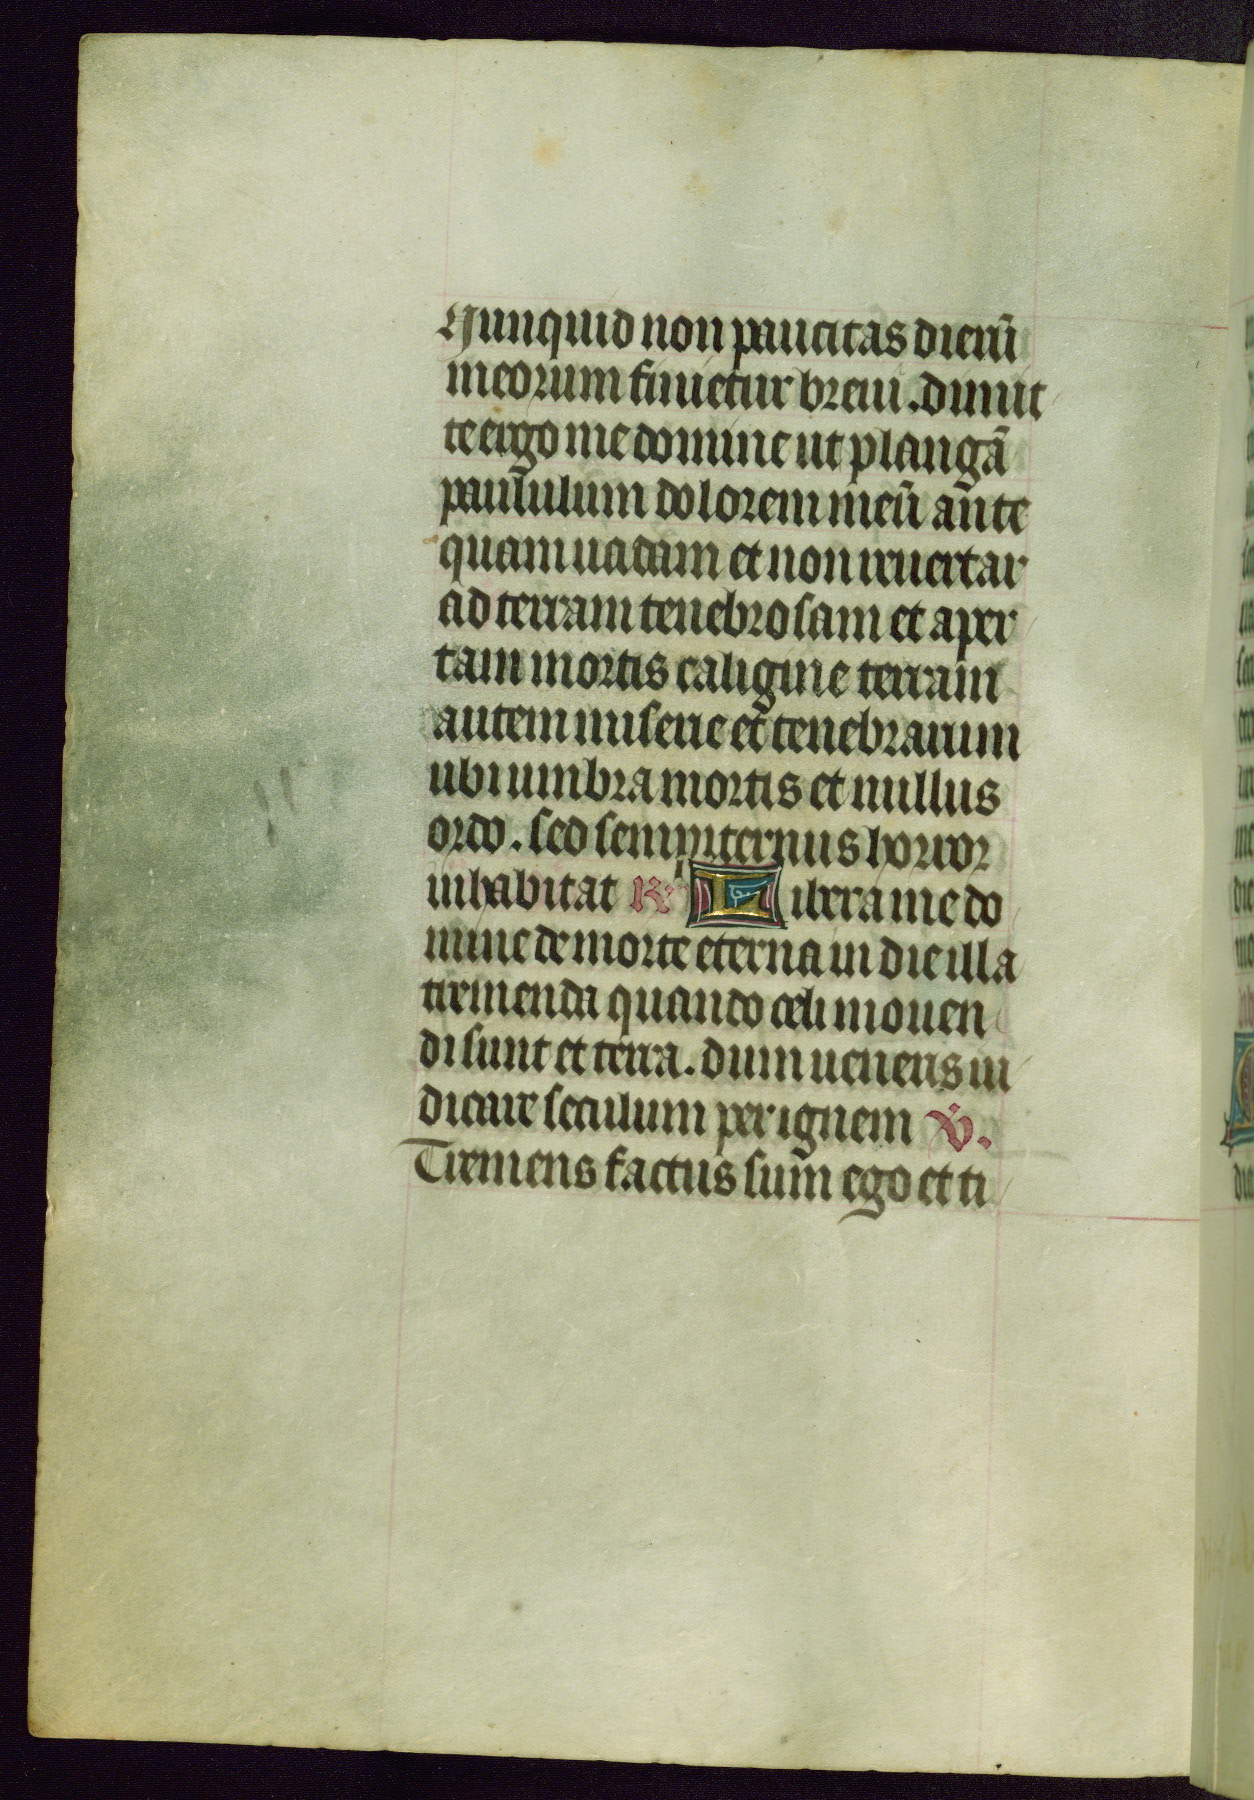 Nunquid non paucitas dierū
meorum finietur breui. dimit
te ergo me domine ut plangā
paululum dolorem meū ante
quam uadam et non reuertar
ad terram tenebrosam et aper
tam mortis caligine terram
autem miserie et tenebrarum
ubi umbra mortis et nullus
ordo. sed sempiternus horror
inhabitat R Libera me do
mine de morte eterna in die illa
tremenda quando celi mouen
di sunt et terra. dum ueneris iu
dicare seculum per ignem V.
Tremens factus sum ego et ti